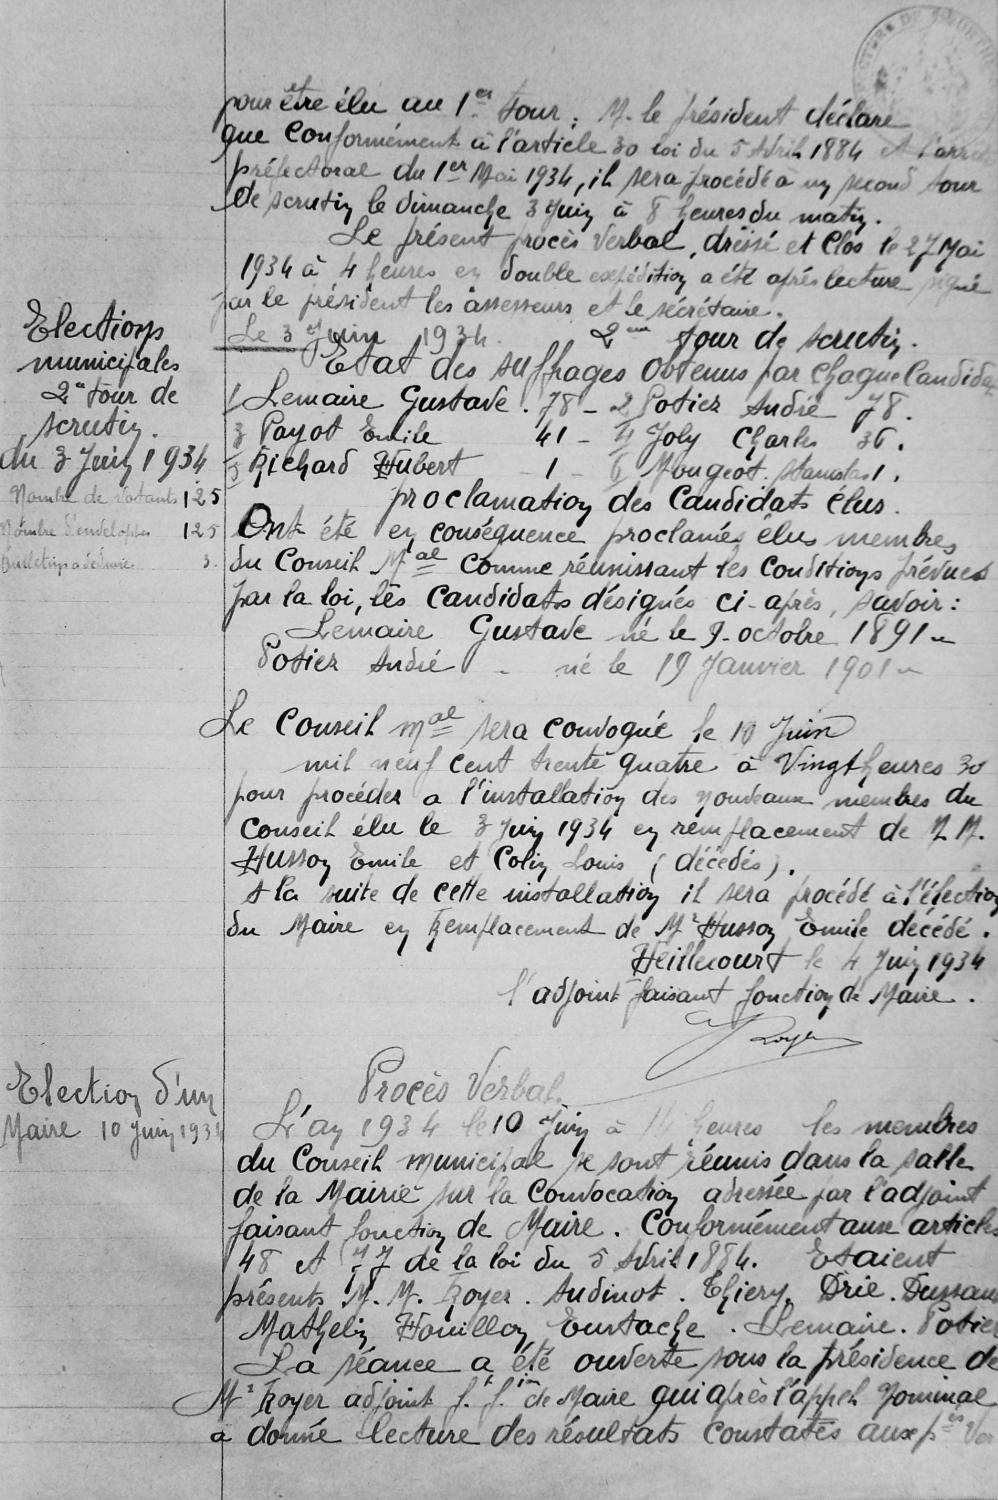 pour être élu au 1er tour ; M. le président déclare
que conformément à l'article 30 loi du 5 Avril 1884 et l'arrêté
préfectoral du 1er Mai 1934, il sera procédé à un second tour
de scrutin le dimanche 3 Juin à 8 heures du matin.
Le présent procès verbal, dressé et clos le 27 Mai
1934 à 4 heures en double expédition a été après lecture signé
par le président les assesseurs et le secrétaire.
Elections
municipales
2e tour de
scrutin.
du 3 Juin 1934
Nombre de votants 125
Nombre d'enveloppes 125
Bulletins a déduire 3.
Le 3 Juin 1934. 2eme tour de scrutin.
Etat des suffrages obtenus par chaque candidat
1 Lemaire Gustave . 78 - 2 Potier André 78.
3 Payot Emile 41 - 4 Joly Charles 36.
5 Richard Hubert - 1 - 6 Mougeot Stanislas 1.
proclamation des candidats élus.
Ont été en conséquence proclamés élus membres
du Conseil Mal comme réunissant les conditions prévues
par la loi, les candidats désignés ci-après, savoir :
Lemaire Gustave né le 9 octobre 1891
Potier André - né le 19 Janvier 1901
Le Conseil mal sera convoqué le 10 Juin
mil neuf cent trente quatre à Vingt heures 30
pour procéder a l'installation des nouveaux membres du
Conseil élu le 3 Juin 1934 en remplacement de M M.
Husson Emile et Colin Louis (décédés).
A la suite de cette installation il sera procédé à l'élection
du Maire en remplacement de Mr Husson Emile décédé.
Heillecourt le 4 Juin 1934
l'adjoint faisant fonction de Maire.
Royer
Election d'un
Maire 10 Juin 1934
Procès Verbal.
L'an 1934 le 10 Juin à heures les membres
du Conseil municipal se sont réunis dans la salle
de la Mairie sur la convocation adressée par l'adjoint
faisant fonction de Maire. Conformément aux articles
48 et 77 de la loi du 5 Avril 1884. Etaient
présents M. M. Royer . Audinot . Thiery. Drie .
Mathelin Houillon Eustache . Lemaire . Potier
La séance a été ouverte sous la présidence de
Mr Royer adjoint f. f. de Maire qui après l'appel nominal
a donné lecture des résultats constatés aux